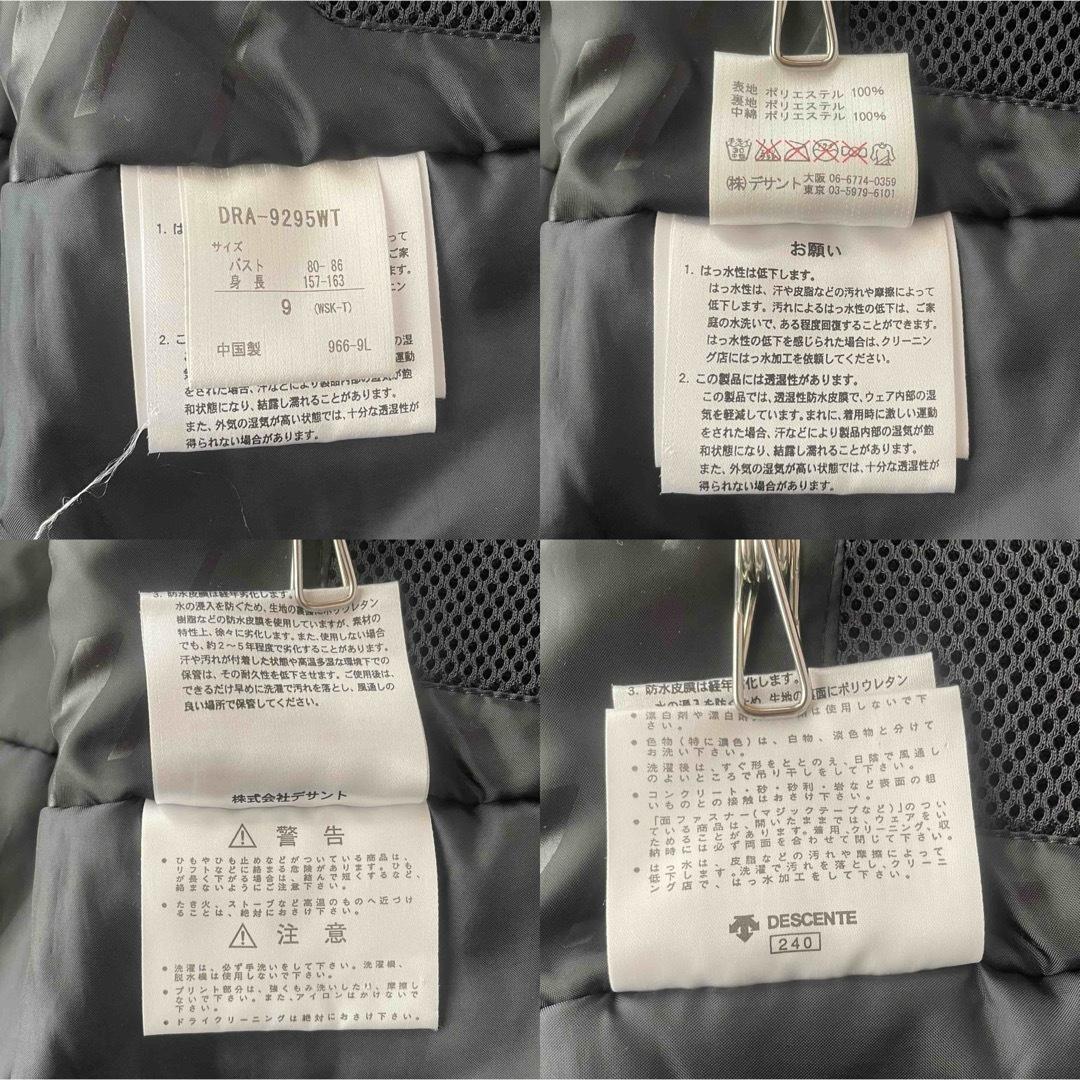 DRA-9295WT
サイズ
バスト 80-86
身長 157-163
9 (WSK-T)
中国製 966-9L
1. は
って
ご家
ます。
ニン
2. こ
の湿
運動
をされた場合、汗などにより製品内部の湿気が飽
和状態になり、結露し濡れることがあります。
また、外気の湿気が高い状態では、十分な透湿性が
得られない場合があります。
表地 ポリエステル 100%
裏地 ポリエステル
中綿 ポリエステル 100%
(株)デサント 大阪 06-6774-0359
東京 03-5979-6101
お願い
1. はっ水性は低下します。
はっ水性は、汗や皮脂などの汚れや摩擦によって
低下します。汚れによるはっ水性の低下は、ご家
庭の水洗いで、ある程度回復することができます。
はっ水性の低下を感じられた場合は、クリーニン
グ店にはっ水加工を依頼してください。
2. この製品には透湿性があります。
この製品では、透湿性防水皮膜で、ウェア内部の湿
気を軽減しています。まれに、着用時に激しい運動
をされた場合、汗などにより製品内部の湿気が飽
和状態になり、結露し濡れることがあります。
また、外気の湿気が高い状態では、十分な透湿性が
得られない場合があります。
3. 防水皮膜は経年劣化します。
水の浸入を防ぐため、生地の裏面にポリウレタン
樹脂などの防水皮膜を使用していますが、素材の
特性上、徐々に劣化します。また、使用しない場合
でも、約2~5年程度で劣化することがあります。
汗や汚れが付着した状態や高温多湿な環境下での
保管は、その耐久性を低下させます。ご使用後は、
できるだけ早めに洗濯で汚れを落とし、風通しの
良い場所で保管してください。
株式会社デサント
警告
● ひもやひも止めなどがついている商品は、
リフトなどに絡まる危険があります。ひも
が長く下がる場合は、結んで短くするなど、
絡まないようにご注意下さい。
● たき火、ストーブなど高温のものへ近づけ
ることは、絶対におさけ下さい。
注意
● 洗濯は、必ず手洗いをして下さい。洗濯機、
脱水機は使用しないで下さい。
● プリント部分は、強くもみ洗いしたり、摩擦し
ないで下さい。また、アイロンはかけないで
下さい。
● ドライクリーニングは絶対におさけ下さい。
3. 防水皮膜は経年劣化します。
水の浸入を防ぐため、生地の裏面にポリウレタン
● 漂白剤や漂白剤 は使用しないで下
さい。
● 色物(特に濃色)は、白物、淡色物と分けて
お洗い下さい。
● 洗濯後は、すぐ形をととのえ、日陰で風通し
のよいところで吊り干しをして下さい。
● コンクリート・砂・砂利・岩など表面の粗
いものとの接触はおさけ下さい。
● 「面ファスナー(マジックテープなど)」のつい
ている商品は、開いたままでは、ウェアをい
ためることがあります。着用、クリーニング、収
納時には必ず両面を合わせて閉じて下さい。
● はっ水は、皮脂などの汚れや摩擦によって
低下します。洗濯で汚れを落とし、クリーニ
ング店で、はっ水加工をして下さい。
DESCENTE
240